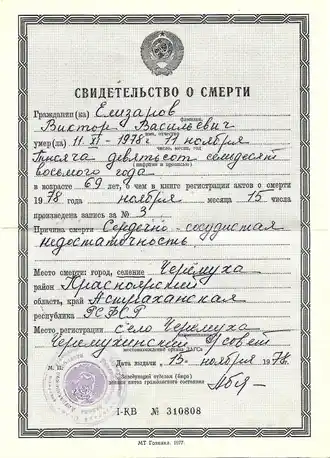 СВИДЕТЕЛЬСТВО О СМЕРТИ
Гражданин(ка) Елизаров
фамилия,
Виктор Васильевич
имя, отчество
умер(ла) 11 XI - 1978г 11 ноября
число, месяц, год
Тысяча девятьсот семидесят
(цифрами и прописью)
восьмого года
в возрасте 69 лет, о чем в книге регистрации актов о смерти
1978 года ноября месяца 15 числа
произведена запись за № 3
Причина смерти Сердечно-сосудистая
недостаточность
Место смерти: город, селение Черёмуха
район Красноярский
область, край Астраханская
республика РСФСР
Место регистрации село Черемуха
Черемухинский с/совет
местонахождение органа ЗАГСа
Дата выдачи „15" ноября 1978г.
М. П.
Заведующий отделом (бюро)
записи актов гражданского состояния
I-КВ № 310808
МТ Гознака. 1977.